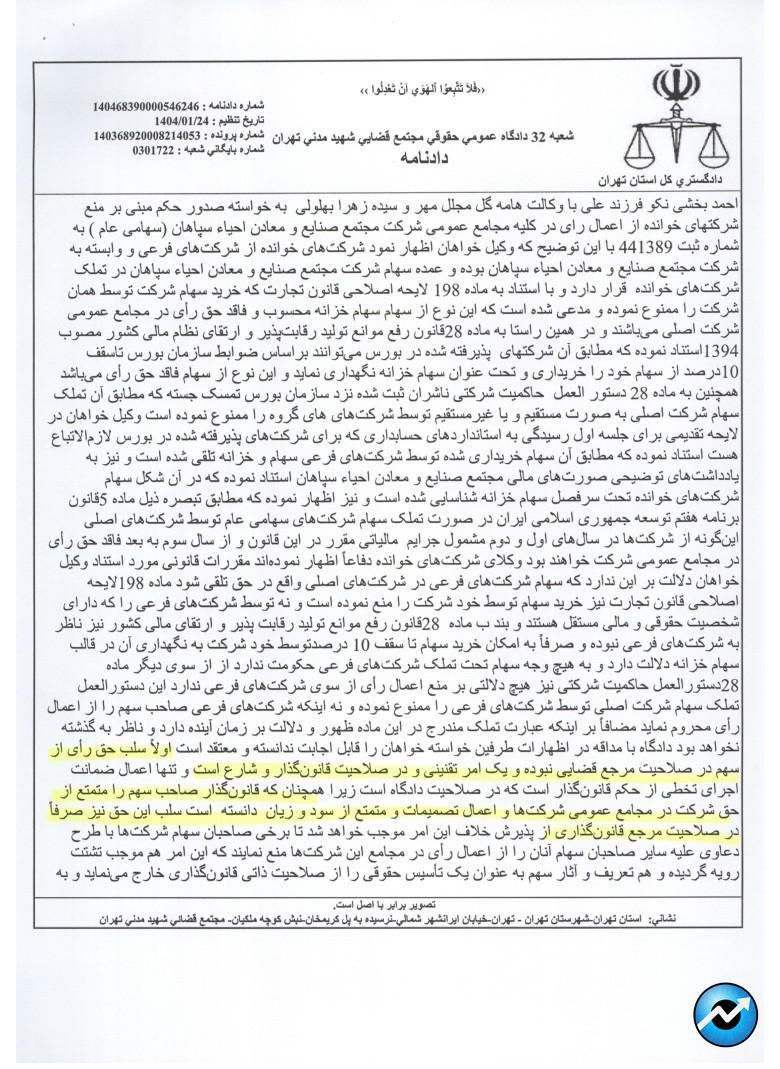 ‹‹فَلاَ تَتَّبِعوُا اَلهَوَيَ اَنْ تَعْدِلُوا ››
شماره دادنامه : 140468390000546246
تاریخ تنظیم : 1404/01/24
شماره پرونده : 140368920008214053
شماره بایگاني شعبه : 0301722
شعبه 32 دادگاه عمومي حقوقي مجتمع قضایي شهید مدني تهران
دادنامه
دادگستري کل استان تهران
احمد بخشی نکو فرزند علی با وکالت هامه گل مجلل مهر و سیده زهرا بهلولی به خواسته صدور حکم مبنی بر منع
شرکتهای خوانده از اعمال رای در کلیه مجامع عمومی شرکت مجتمع صنایع و معادن احیاء سپاهان (سهامی عام ) به
شماره ثبت 441389 با این توضیح که وکیل خواهان اظهار نمود شرکت‌های خوانده از شرکت‌های فرعی و وابسته به
شرکت مجتمع صنایع و معادن احیاء سپاهان بوده و عمده سهام شرکت مجتمع صنایع و معادن احیاء سپاهان در تملک
شرکت‌های خوانده قرار دارد و با استناد به ماده 198 لایحه اصلاحی قانون تجارت که خرید سهام شرکت توسط همان
شرکت را ممنوع نموده و مدعی شده است که این نوع از سهام سهام خزانه محسوب و فاقد حق رأی در مجامع عمومی
شرکت اصلی می‌باشند و در همین راستا به ماده 28قانون رفع موانع تولید رقابت‌پذیر و ارتقای نظام مالی کشور مصوب
1394استناد نموده که مطابق آن شرکتهای پذیرفته شده در بورس می‌توانند براساس ضوابط سازمان بورس تاسقف
10درصد از سهام خود را خریداری و تحت عنوان سهام خزانه نگهداری نماید و این نوع از سهام فاقد حق رأی می‌باشد
همچنین به ماده 28 دستور العمل حاکمیت شرکتی ناشران ثبت شده نزد سازمان بورس تمسک جسته که مطابق آن تملک
سهام شرکت اصلی به صورت مستقیم و یا غیرمستقیم توسط شرکت‌های های گروه را ممنوع نموده است وکیل خواهان در
لایحه تقدیمی برای جلسه اول رسیدگی به استانداردهای حسابداری که برای شرکت‌های پذیرفته شده در بورس لازم‌الاتباع
هست استناد نموده که مطابق آن سهام خریداری شده توسط شرکت‌های فرعی سهام و خزانه تلقی شده است و نیز به
یادداشت‌های توضیحی صورت‌های مالی مجتمع صنایع و معادن احیاء سپاهان استناد نموده که در آن شکل سهام
شرکت‌های خوانده تحت سرفصل سهام خزانه شناسایی شده است و نیز اظهار نموده که مطابق تبصره ذیل ماده 5قانون
برنامه هفتم توسعه جمهوری اسلامی ایران در صورت تملک سهام شرکت‌های سهامی عام توسط شرکت‌های اصلی
این‌گونه از شرکت‌ها در سال‌های اول و دوم مشمول جرایم مالیاتی مقرر در این قانون و از سال سوم به بعد فاقد حق رأی
در مجامع عمومی شرکت خواهند بود وکلای شرکت‌های خوانده دفاعاً اظهار نموده‌اند مقررات قانونی مورد استناد وکیل
خواهان دلالت بر این ندارد که سهام شرکت‌های فرعی در شرکت‌های اصلی واقع در حق تلقی شود ماده 198لایحه
اصلاحی قانون تجارت نیز خرید سهام توسط خود شرکت را منع نموده است و نه توسط شرکت‌های فرعی را که دارای
شخصیت حقوقی و مالی مستقل هستند و بند ب ماده 28قانون رفع موانع تولید رقابت پذیر و ارتقای مالی کشور نیز ناظر
به شرکت‌های فرعی نبوده و صرفاً به امکان خرید سهام تا سقف 10 درصدتوسط خود شرکت به نگهداری آن در قالب
سهام خزانه دلالت دارد و به هیچ وجه سهام تحت تملک شرکت‌های فرعی حکومت ندارد از از سوی دیگر ماده
28دستورالعمل حاکمیت شرکتی نیز هیچ دلالتی بر منع اعمال رأی از سوی شرکت‌های فرعی ندارد این دستورالعمل
تملک سهام شرکت اصلی توسط شرکت‌های فرعی را ممنوع نموده و نه اینکه شرکت‌های فرعی صاحب سهم را از اعمال
رأی محروم نماید مضافاً بر اینکه عبارت تملک مندرج در این ماده ظهور و دلالت بر زمان آینده دارد و ناظر به گذشته
نخواهد بود دادگاه با مداقه در اظهارات طرفین خواسته خواهان را قابل اجابت ندانسته و معتقد است اولاً سلب حق رأی از
سهم در صلاحیت مرجع قضایی نبوده و یک امر تقنینی و در صلاحیت قانون‌گذار و شارع است و تنها اعمال ضمانت
اجرای تخطی از حکم قانون‌گذار است که در صلاحیت دادگاه است زیرا همچنان که قانون‌گذار صاحب سهم را متمتع از
حق شرکت در مجامع عمومی شرکت‌ها و اعمال تصمیمات و متمتع از سود و زیان دانسته است سلب این حق نیز صرفاً
در صلاحیت مرجع قانون‌گذاری از پذیرش خلاف این امر موجب خواهد شد تا برخی صاحبان سهام شرکت‌ها با طرح
دعاوی علیه سایر صاحبان سهام آنان را از اعمال رأی در مجامع این شرکت‌ها منع نمایند که این امر هم موجب تشتت
رویه گردیده و هم تعریف و آثار سهم به عنوان یک تأسیس حقوقی را از صلاحیت ذاتی قانون‌گذاری خارج می‌نماید و به
تصویر برابر با اصل است.
نشاني: استان تهران-شهرستان تهران - تهران-خیابان ایرانشهر شمالي-نرسیده به پل کریمخان-نبش کوچه ملکیان- مجتمع قضائي شهید مدني تهران